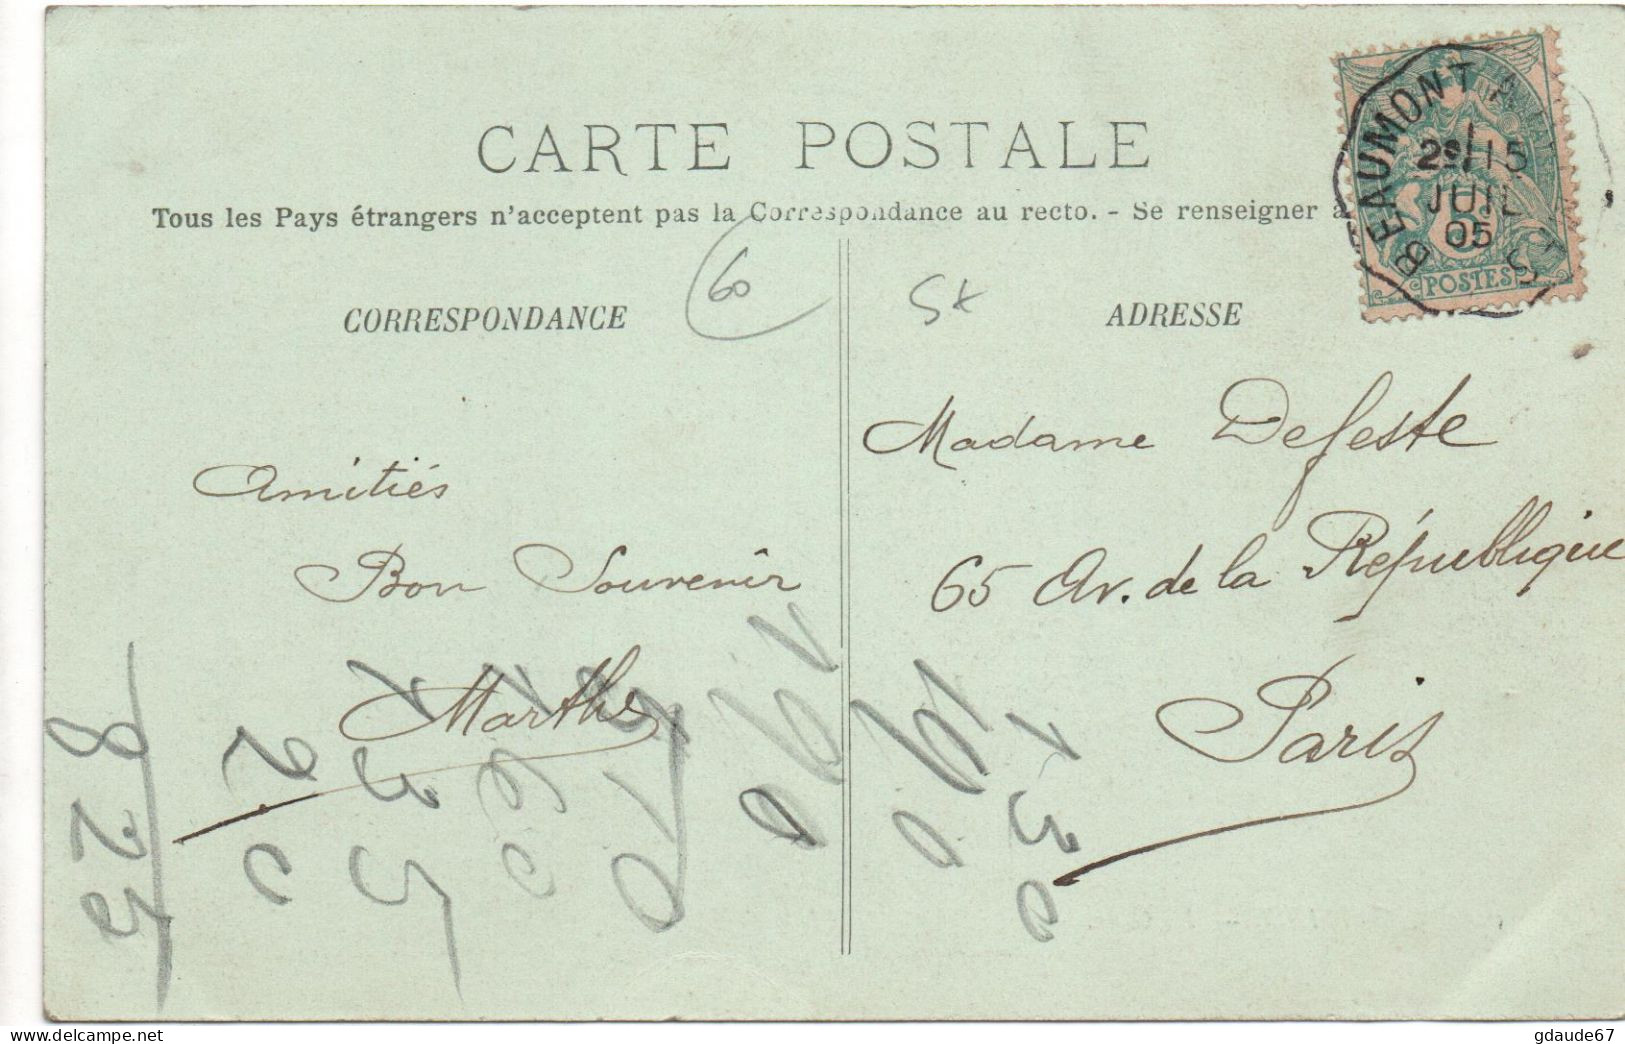 CARTE POSTALE
Tous les Pays étrangers n'acceptent pas la Correspondance au recto. - Se renseigner à
CORRESPONDANCE
60
ADRESSE
BEAUMONT A
2E 15
JUIL
05
5
POSTES
Amitiés
Bon Souvenir
Marthe
Madame Defeste
65 Av. de la République
Paris
1 30
8 25
delcampe.net
gdaude67